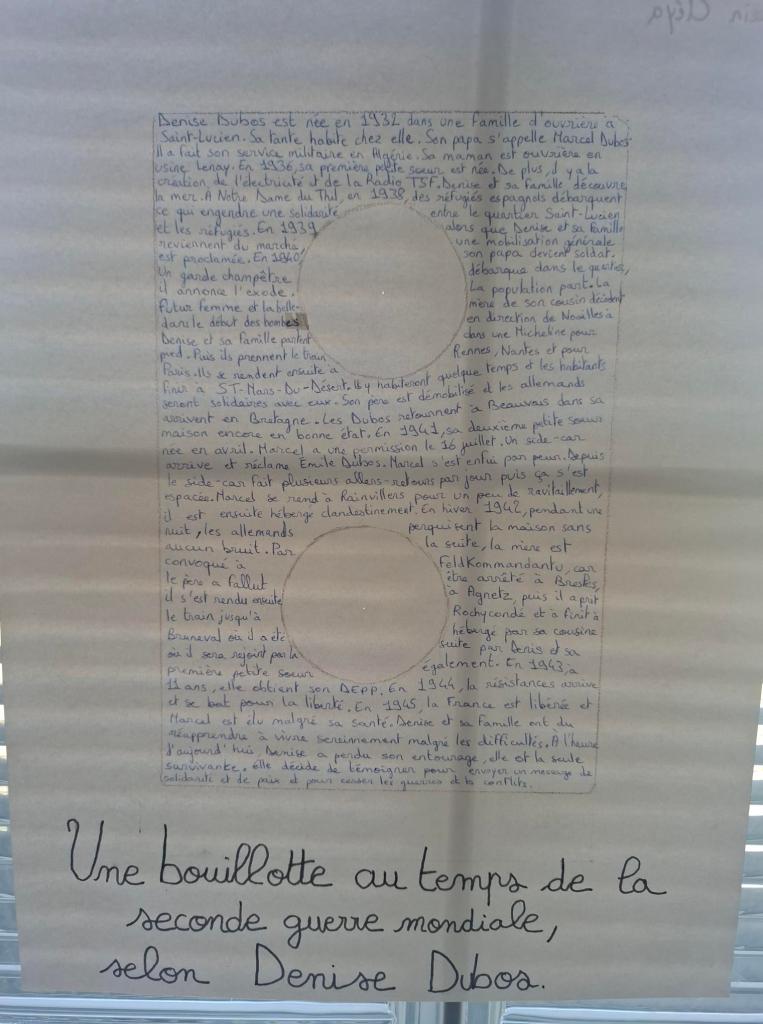 Denise Dubos est née en 1932 dans une famille d'ouvrière à
Saint-Lucien. Sa tante habite chez elle. Son papa s'appelle Marcel Dubos.
Il a fait son service militaire en Algérie. Sa maman est ouvrière en
usine Lenay. En 1936, sa première petite soeur est née. De plus, il y a la
création de l'électricité et de la Radio TSF. Denise et sa famille découvre
la mer. A Notre Dame du Thil, en 1938, des réfugiés espagnols débarquent
ce qui engendre une solidarité entre le quartier Saint-Lucien
et les réfugiés. En 1939 alors que Denise et sa famille
reviennent du marché, une mobilisation générale
est proclamée. En 1940 son papa devient soldat.
Un garde champêtre débarque dans le quartier,
il annonce l'exode. La population part. La
futur femme et la belle- mère de son cousin décèdent
dans le début des bombes en direction de Noailles à
Denise et sa famille partent dans une Micheline pour
pied. Puis ils prennent le train Rennes, Nantes et pour
Paris. Ils se rendent ensuite à quelque temps et les habitants
finir à ST-Mars-Du-Désert. Ils y habiteront
seront solidaires avec eux. Son père est démobilisé et les allemands
arrivent en Bretagne. Les Dubos retournent à Beauvais dans sa
maison encore en bonne état. En 1941, sa deuxième petite soeur
née en avril. Marcel a une permission le 16 juillet. Un side-car
arrive et réclame Émile Dubos. Marcel s'est enfui par peur. Depuis
le side-car fait plusieurs allers-retours par jour puis ça s'est
espacée. Marcel se rend à Rainvillers pour un peu de ravitaillement,
il est ensuite hébergé clandestinement. En hiver 1942, pendant une
nuit, les allemands perquisent la maison sans
aucun bruit. Par la suite, la mère est
convoqué à FeldKommandantu, car
le père a fallut être arrêté à Bresles,
il s'est rendu ensuite à Agnetz, puis il a prit
le train jusqu'à Rochycondé et à finit à
Bruneval où il a été hébergé par sa cousine
où il sera rejoint par la suite par Denis et sa
première petite soeur également. En 1943, à
11 ans, elle obtient son DEPP. En 1944, la résistances arrive
et se bat pour la liberté. En 1945, la France est libérée et
Marcel est élu malgré sa santé. Denise et sa famille ont du
réapprendre à vivre sereinnement malgré les difficultés. À l'heure
d'aujourd'hui, Denise a perdu son entourage, elle est la seule
survivante. elle décide de témoigner pour envoyer un message de
solidarité et de paix et pour cesser les guerres et la conflits.
Une bouillotte au temps de la
seconde guerre mondiale,
selon Denise Dubos.